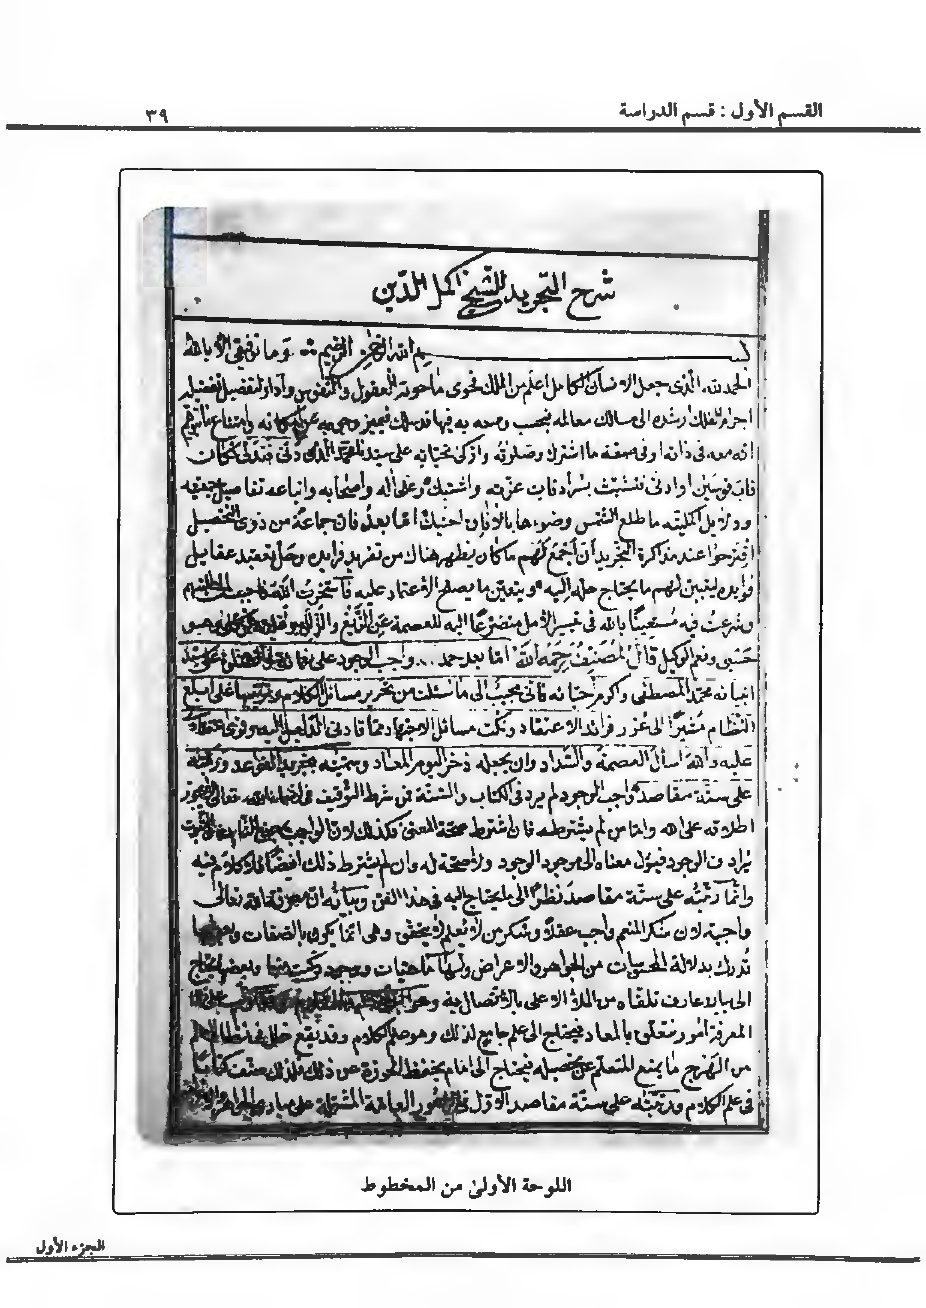 القسم الأول : قسم الدراسة
٣٩
شرح التجريد للشيخ اكمل الدين
بسم الله الرحمن الرحيم وما توفيقي الا بالله
الحمد لله الذي جعل الانسان الكامل اعلم من الملك فحوى ما حوته العقول والنفوس
اجرام الفلك ارشده الى مسالك معالمه
انه معه في ذاته او في صفته ما اشترك وصلوته وازكى تحياته على سيدنا محمد الذي دنى فتدلى فكان
قاب قوسين او ادنى فتشبث بسرادقات عزته واشتبك وعلى اله واصحابه واتباعه
ما طلع الشمس وضوءها بالافاق احتبك اما بعد فان جماعة من ذوي التحصيل
اقترحوا عند مذاكرة التجريد أن أجمع لهم ما كان يظهر هناك من تفريد فرايده وحل تعقيد عقايل
فوايده ليتبين لهم ما يحتاج حله اليه ويتعين ما يصلح الاعتماد عليه فاستخرت الله
وشرعت فيه مستعينا بالله في تيسير الامل متضرعا اليه للعصمة عن الزيغ والزلل وهو
حسبي ونعم الوكيل قال المصنف رحمه الله اما بعد حمد واجب الوجود على نعمائه والصلوة على سيد
انبيائه محمد المصطفى واكرم احبائه فاني مجيب الى ما سئلت من تحرير مسائل الكلام وترتيبها على ابلغ
النظام مشيرا الى غرر فرائد الاعتقاد ونكت مسائل الاجتهاد مما قادني الدليل اليه وقوى اعتقادي
عليه والله اسأل العصمة والسداد وان يجعله ذخرا ليوم المعاد وسميته بتجريد العقائد ورتبته
على ستة مقاصد واجب الوجود لم يرد في الكتاب والسنة فمن شرط التوقيف في اسماء الله تعالى
اطلاقه على الله واما من لم يشترطه فان اشترط صحة المعنى فكذلك لان الواجب
يرادف الوجود فيؤل معناه الى موجود الوجود ولا صحة له وان لم يشترط ذلك ايضا فلا كلام فيه
وانما رتبه على ستة مقاصد نظرا الى ما يحتاج اليه في هذا الفن وبيانه ان معرفة الله تعالى
واجبة لان شكر المنعم واجب عقلا وشكر من لا يعلم لا يتحقق وهي انما يكون بالصفات
تدرك بدلالة المحدثات من الجواهر والاعراض ولها ماهيات ووجود
المعرفة امور تتعلق بالمعاد فيحتاج الى علم جامع لذلك وهو علم الكلام وقد يقع
من الهرج ما يمنع المتعلم عن تحصيله فيحتاج الى امام يحفظ الحوزة عن ذلك فلذلك صنف كتابا
في علم الكلام ورتبه على ستة مقاصد الاول في الامور العامة المشتملة على مبادي
اللوحة الأولى من المخطوط
الجزء الأول